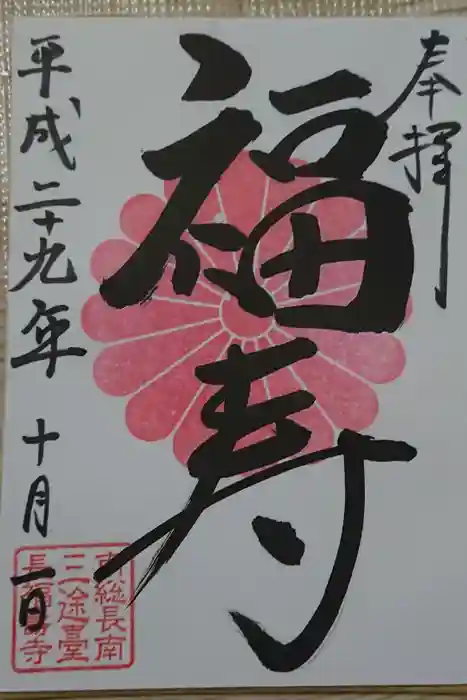 奉拝
福寿
平成二十九年十月一日
南総長南
三途臺
長福寿寺